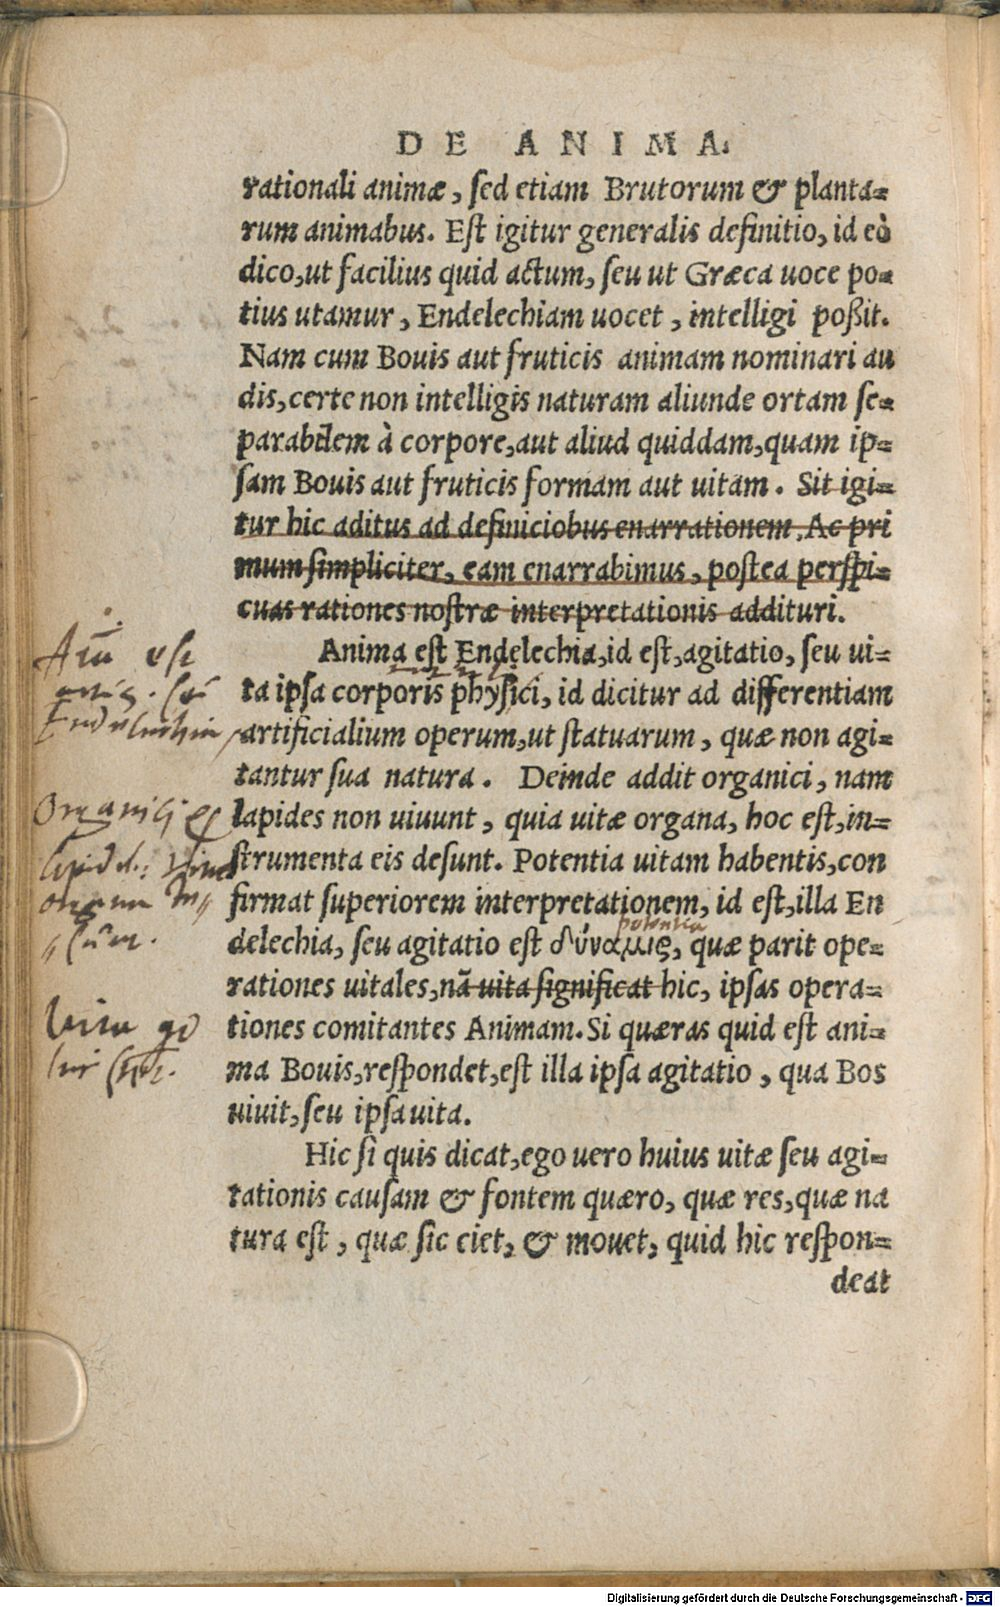 DE ANIMA.
rationali animæ, sed etiam Brutorum & planta-
rum animabus. Est igitur generalis definitio, id eò
dico, ut facilius quid actum, seu ut Græca uoce po-
tius utamur, Endelechiam uocet, intelligi poßit.
Nam cum Bouis aut fruticis animam nominari au
dis, certe non intelligis naturam aliunde ortam se-
parabilem à corpore, aut aliud quiddam, quam ip-
sam Bouis aut fruticis formam aut uitam. Sit igi-
tur hic aditus ad definiciobus enarrationem. Ac pri
mum simpliciter, eam enarrabimus, postea perspi-
cuas rationes nostræ interpretationis addituri.
Anima est Endelechia, id est, agitatio, seu ui-
ta ipsa corporis physici, id dicitur ad differentiam
artificialium operum, ut statuarum, quæ non agi-
tantur sua natura. Deinde addit organici, nam
lapides non uiuunt, quia uitæ organa, hoc est, in-
strumenta eis desunt. Potentia uitam habentis, con
firmat superiorem interpretationem, id est, illa En
potentia
delechia, seu agitatio est δύναμις, quæ parit ope-
rationes uitales, nã uita significat hic, ipsas opera-
tiones comitantes Animam. Si quæras quid est ani-
ma Bouis, respondet, est illa ipsa agitatio, qua Bos
uiuit, seu ipsa uita.
Hic si quis dicat, ego uero huius uitæ seu agi-
tationis causam & fontem quæro, quæ res, quæ na
tura est, quæ sic ciet, & mouet, quid hic respon-
deat
Digitalisierung gefördert durch die Deutsche Forschungsgemeinschaft - DFG